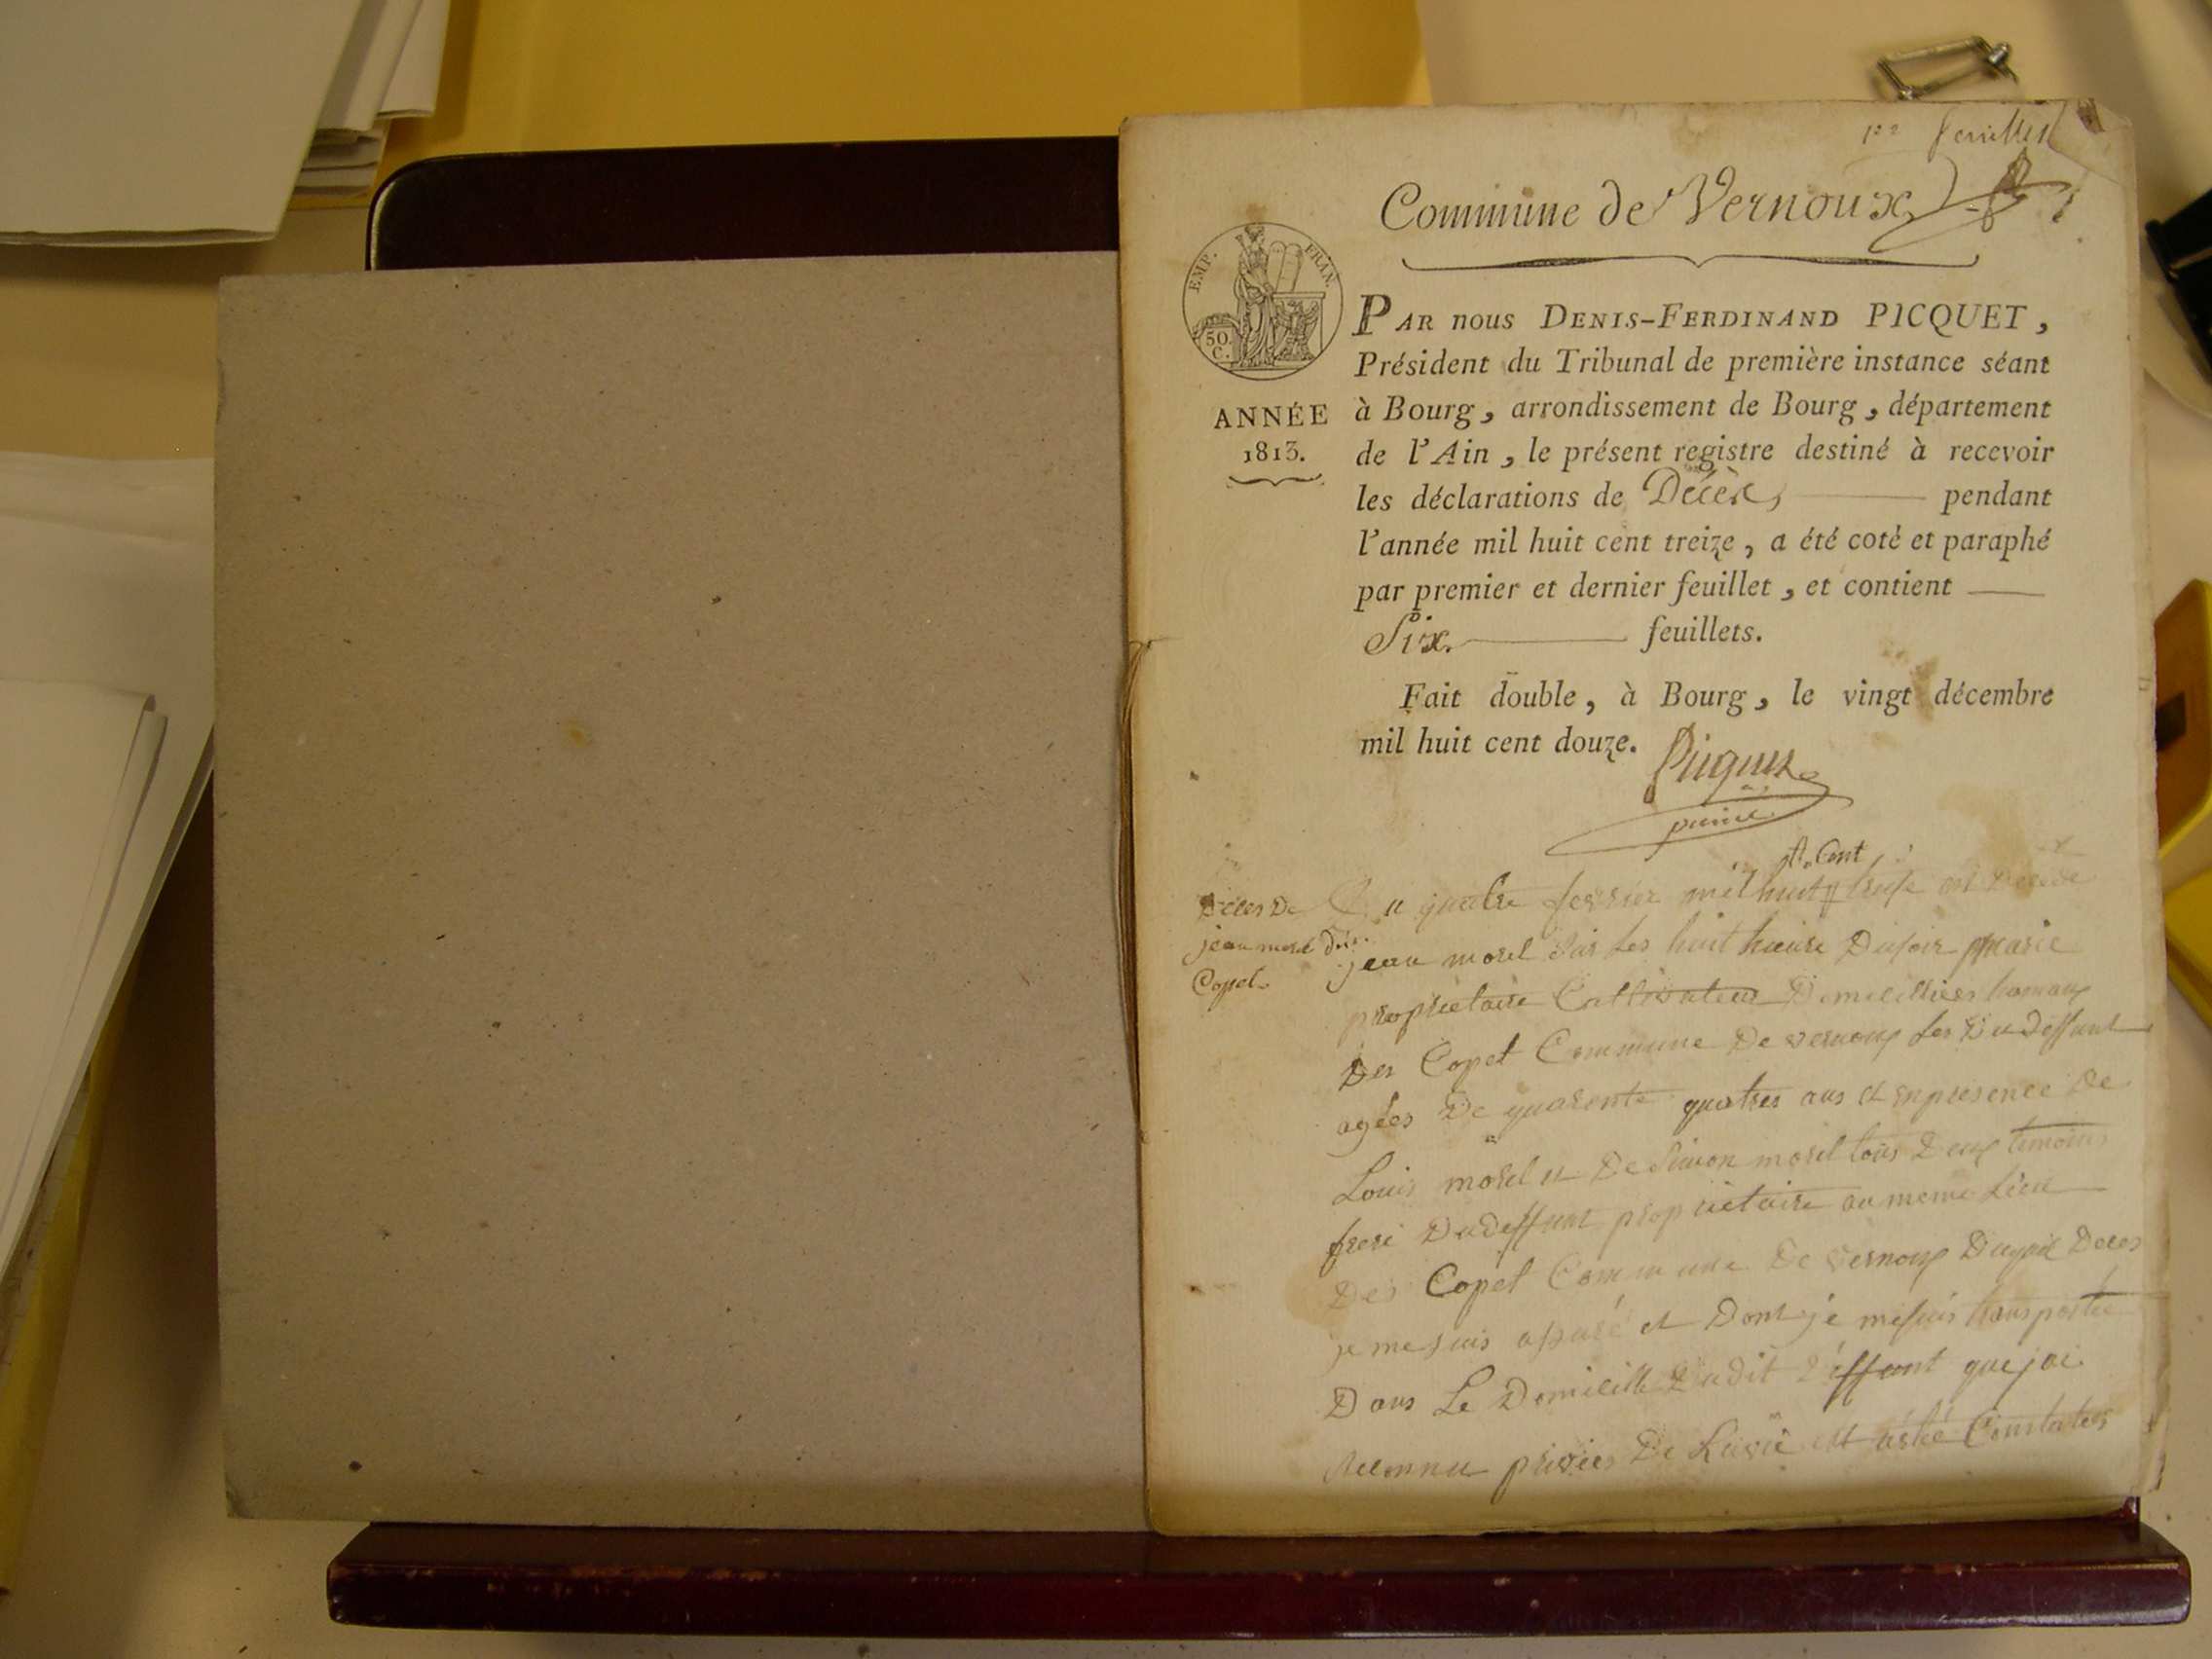 1er feuillet
Commune de Vernoux
EMP. FRAN.
50. C.
ANNÉE
1813.
PAR nous DENIS-FERDINAND PICQUET,
Président du Tribunal de première instance séant
à Bourg, arrondissement de Bourg, département
de l'Ain, le présent registre destiné à recevoir
les déclarations de Décès, pendant
l'année mil huit cent treize, a été coté et paraphé
par premier et dernier feuillet, et contient
Six feuillets.
Fait double, à Bourg, le vingt décembre
mil huit cent douze.
Picquet
Décès De
jean morel
Copet
Du quatre fevrier mil huit cent treise est décédé
jean morel Sur Les huit heure Du soir marié
proprietaire Cultivateur Domicilliés hamaux
Des Copet Commune De vernoux Les Du deffunt
agées De quarente quatres ans et en présence De
Louis morel et De Simon morel tous Deux temoins
frere Du deffunt proprietaire au meme Lieu
Des Copet Commune De vernoux Duquel Deces
je me suis assuré et Dont je me suis transportée
Dans Le Domicille Dudit déffunt que jai
Reconnu privées De La vie et a été Constatées